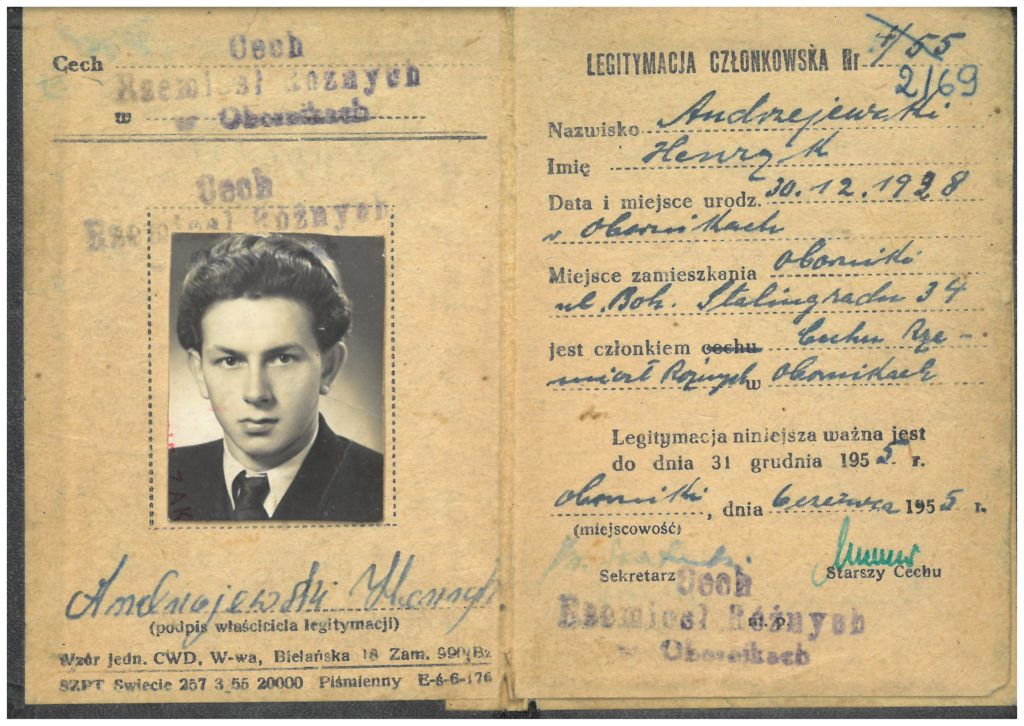 Cech
Cech
Rzemiosł Różnych
w
w Obornikach
Cech
Rzemiosł Różnych
Andrzejewski Henryk
(podpis właściciela legitymacji)
Wzór jedn. CWD, W-wa, Bielańska 18 Zam. 990/Bz
SZPT Swiecie 257 3 55 20000 Piśmienny E-ś-6-176
LEGITYMACJA CZŁONKOWSKA Nr 4/55
2/69
Nazwisko Andrzejewski
Imię Henryk
Data i miejsce urodz. 30.12.1938
w Obornikach
Miejsce zamieszkania Oborniki
ul. Boh. Stalingradu 34
jest członkiem cechu Cechu Rze-
miosł Różnych w Obornikach
Legitymacja niniejsza ważna jest
do dnia 31 grudnia 1955 r.
Oborniki, dnia 6 czerwca 1955 r.
(miejscowość)
Sekretarz
Starszy Cechu
Cech
m. p.
Rzemiosł Różnych
w Obornikach